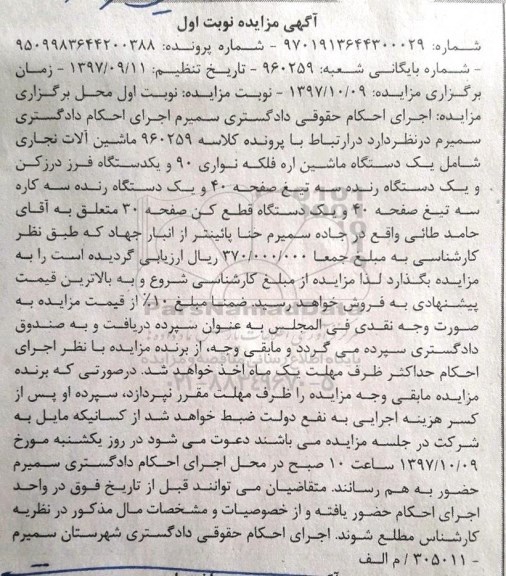 آگهی مزایده نوبت اول
شماره: ۹۷۰۱۹۱۳۶۴۴۳۰۰۰۲۹ - شماره پرونده: ۹۵۰۹۹۸۳۶۴۴۲۰۰۳۸۸
- شماره بایگانی شعبه: ۹۶۰۲۵۹ - تاریخ تنظیم: ۱۳۹۷/۰۹/۱۱ - زمان
برگزاری مزایده: ۱۳۹۷/۱۰/۰۹ - نوبت مزایده: نوبت اول محل برگزاری
مزایده: اجرای احکام حقوقی دادگستری سمیرم اجرای احکام دادگستری
سمیرم درنظردارد درارتباط با پرونده کلاسه ۹۶۰۲۵۹ ماشین آلات نجاری
شامل یک دستگاه ماشین اره فلکه نواری ۹۰ و یکدستگاه فرز درزکن
و یک دستگاه رنده سه تیغ صفحه ۴۰ و یک دستگاه رنده سه کاره
سه تیغ صفحه ۴۰ و یک دستگاه قطع کن صفحه ۳۰ متعلق به آقای
حامد طائی واقع در جاده سمیرم حنا پائینتر از انبار جهاد که طبق نظر
کارشناسی به مبلغ جمعا ۳۷۰/۰۰۰/۰۰۰ ریال ارزیابی گردیده است را به
مزایده بگذارد لذا مزایده از مبلغ کارشناسی شروع و به بالاترین قیمت
پیشنهادی به فروش خواهد رسید. ضمنا مبلغ ۱۰٪ از قیمت مزایده به
صورت وجه نقدی فی المجلس به عنوان سپرده دریافت و به صندوق
دادگستری سپرده می گردد و مابقی وجه، از برنده مزایده با نظر اجرای
احکام حداکثر ظرف مهلت یک ماه اخذ خواهد شد. درصورتی که برنده
مزایده مابقی وجه مزایده را ظرف مهلت مقرر نپردازد، سپرده او پس از
کسر هزینه اجرایی به نفع دولت ضبط خواهد شد از کسانیکه مایل به
شرکت در جلسه مزایده می باشند دعوت می شود در روز یکشنبه مورخ
۱۳۹۷/۱۰/۰۹ ساعت ۱۰ صبح در محل اجرای احکام دادگستری سمیرم
حضور به هم رسانند. متقاضیان می توانند قبل از تاریخ فوق در واحد
اجرای احکام حضور یافته و از خصوصیات و مشخصات مال مذکور در نظریه
کارشناس مطلع شوند. اجرای احکام حقوقی دادگستری شهرستان سمیرم
- ۳۰۵۰۱۱ / م الف